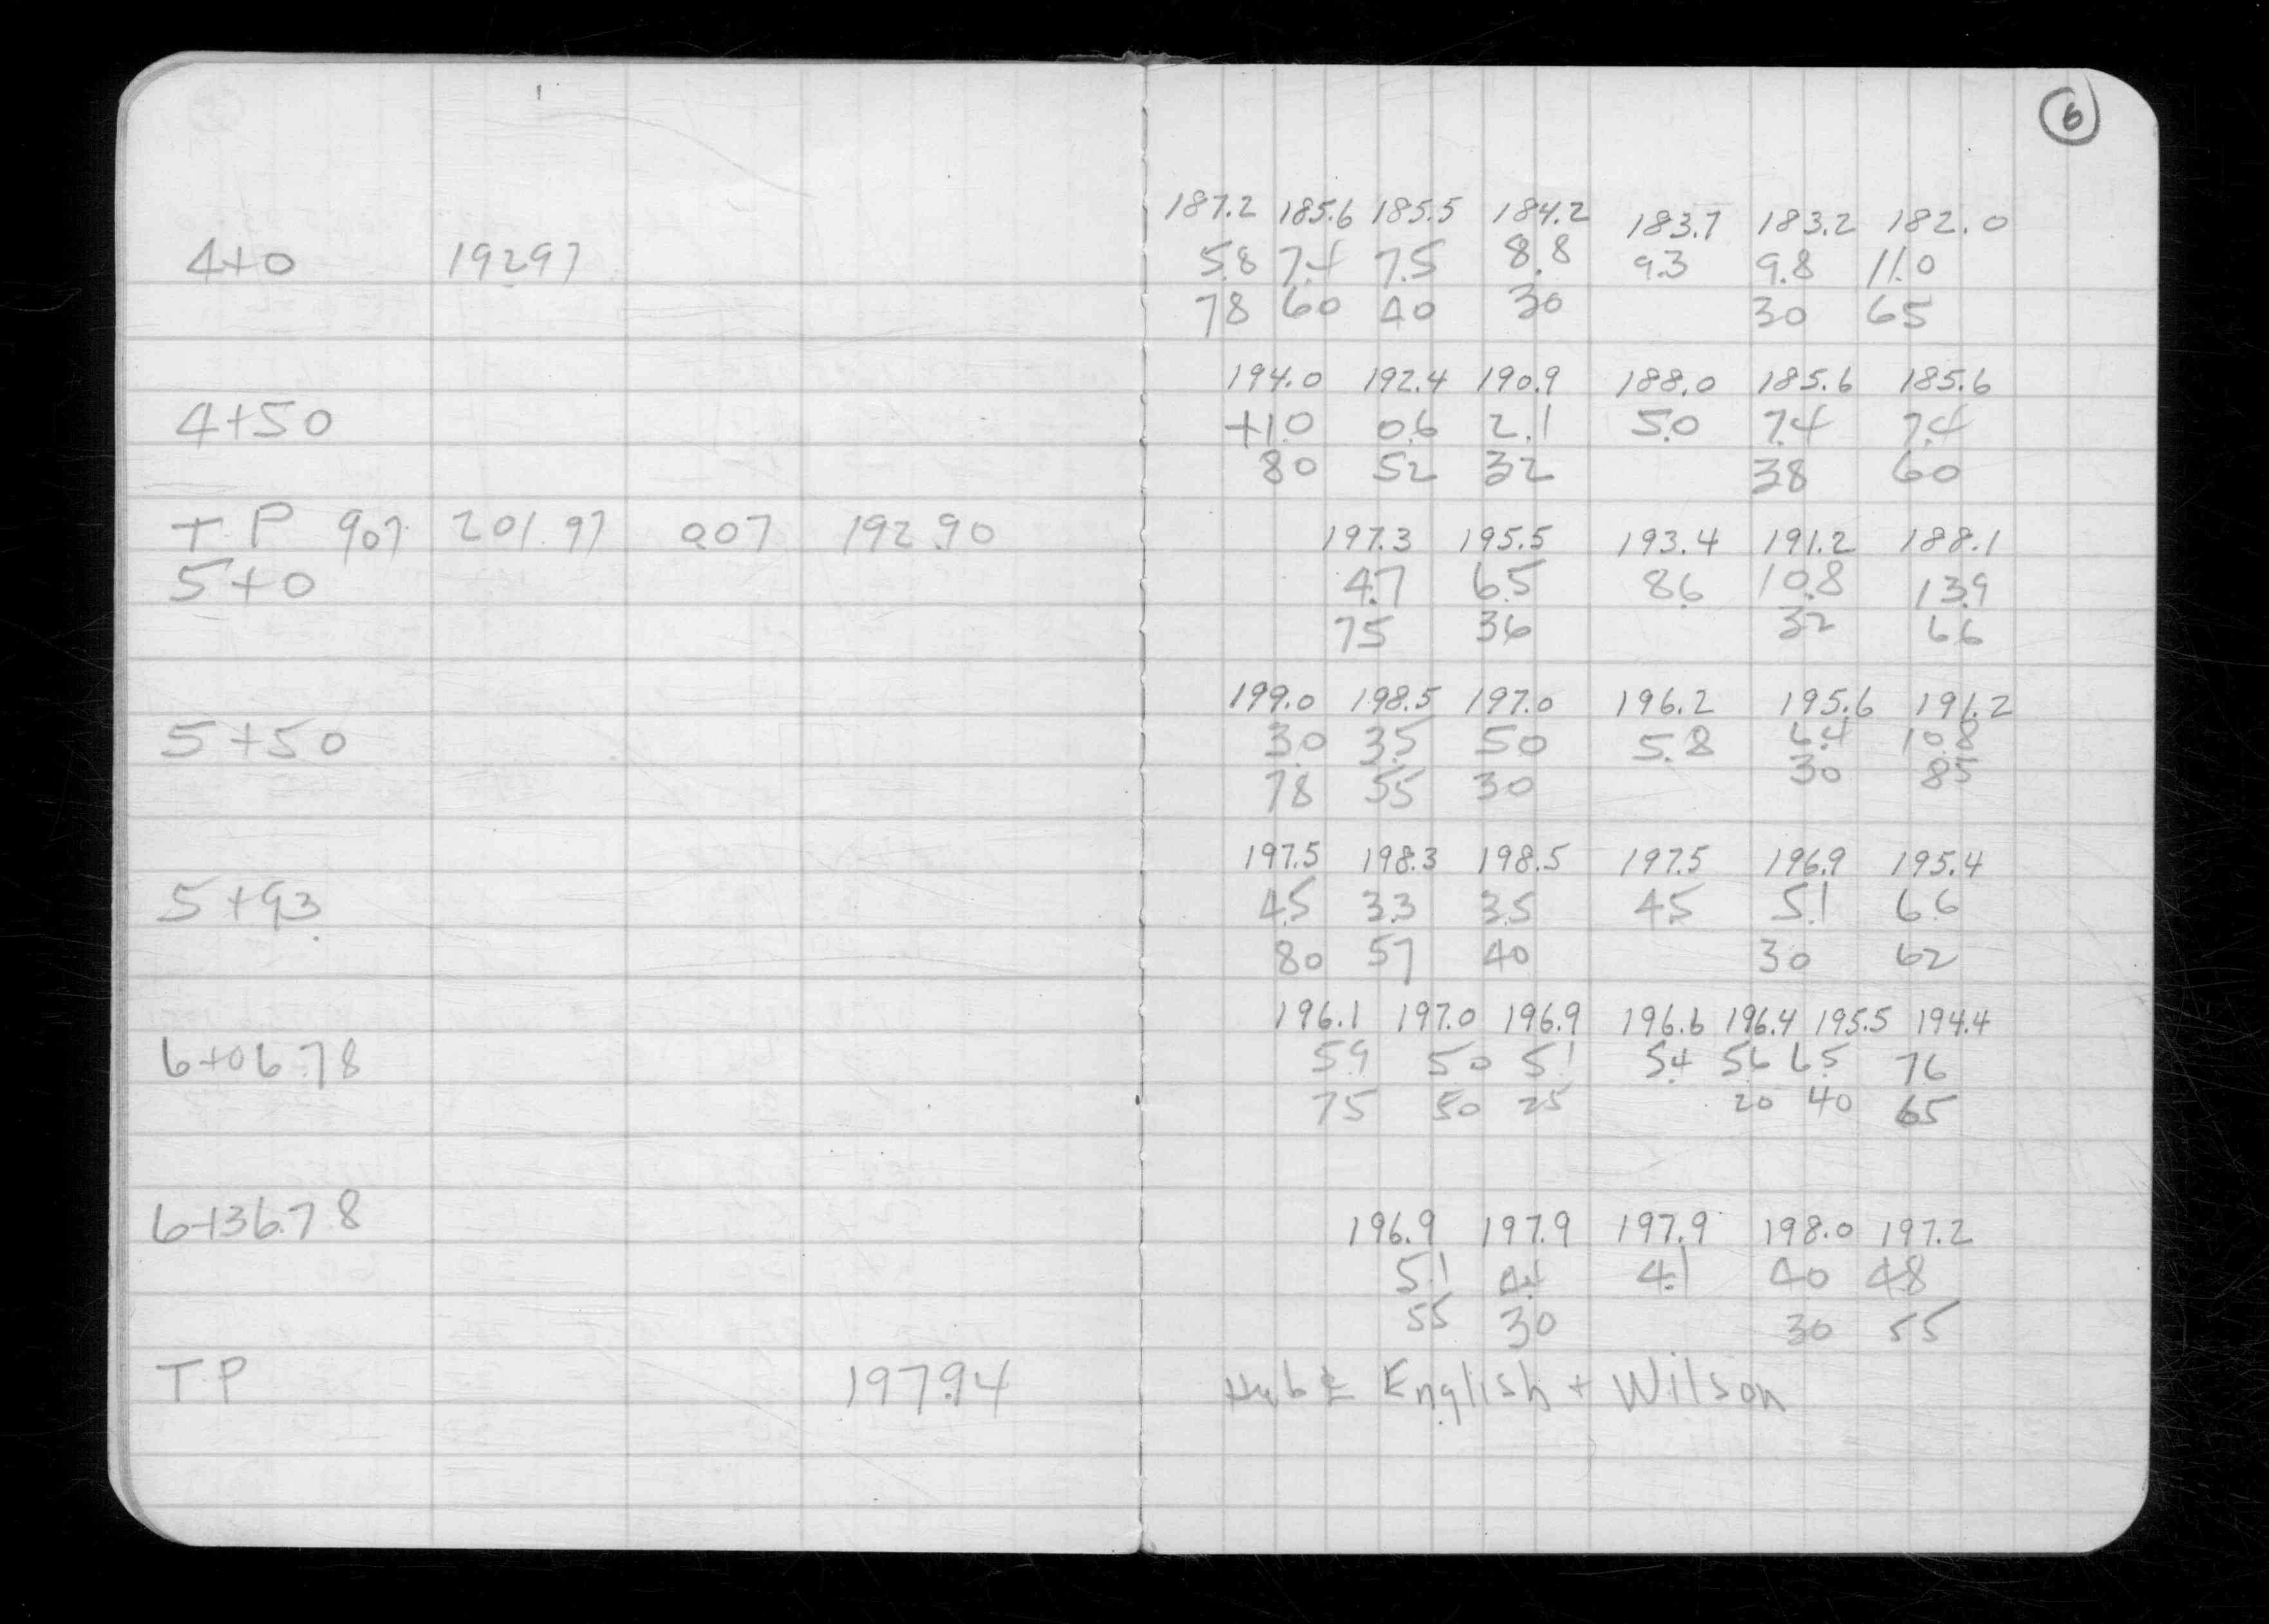 6
187.2 185.6 185.5 184.2 183.7 183.2 182.0
4+0 192.97 5.8 7.4 7.5 8.8 9.3 9.8 11.0
78 60 40 30 30 65
194.0 192.4 190.9 188.0 185.6 185.6
4+50 +1.0 0.6 2.1 5.0 7.4 7.4
80 52 32 38 60
T.P 9.07 201.97 0.07 192.90 197.3 195.5 193.4 191.2 188.1
5+0 4.7 6.5 8.6 10.8 13.9
75 36 32 66
199.0 198.5 197.0 196.2 195.6 191.2
5+50 3.0 3.5 5.0 5.8 6.4 10.8
78 55 30 30 85
197.5 198.3 198.5 197.5 196.9 195.4
5+93 4.5 3.3 3.5 4.5 5.1 6.6
80 57 40 30 62
196.1 197.0 196.9 196.6 196.4 195.5 194.4
6+06.78 5.9 5.0 5.1 5.4 5.6 6.5 7.6
75 50 25 20 40 65
6+36.78 196.9 197.9 197.9 198.0 197.2
5.1 4.1 4.1 4.0 4.8
55 30 30 55
T.P 197.94 Hub ℄ English + Wilson